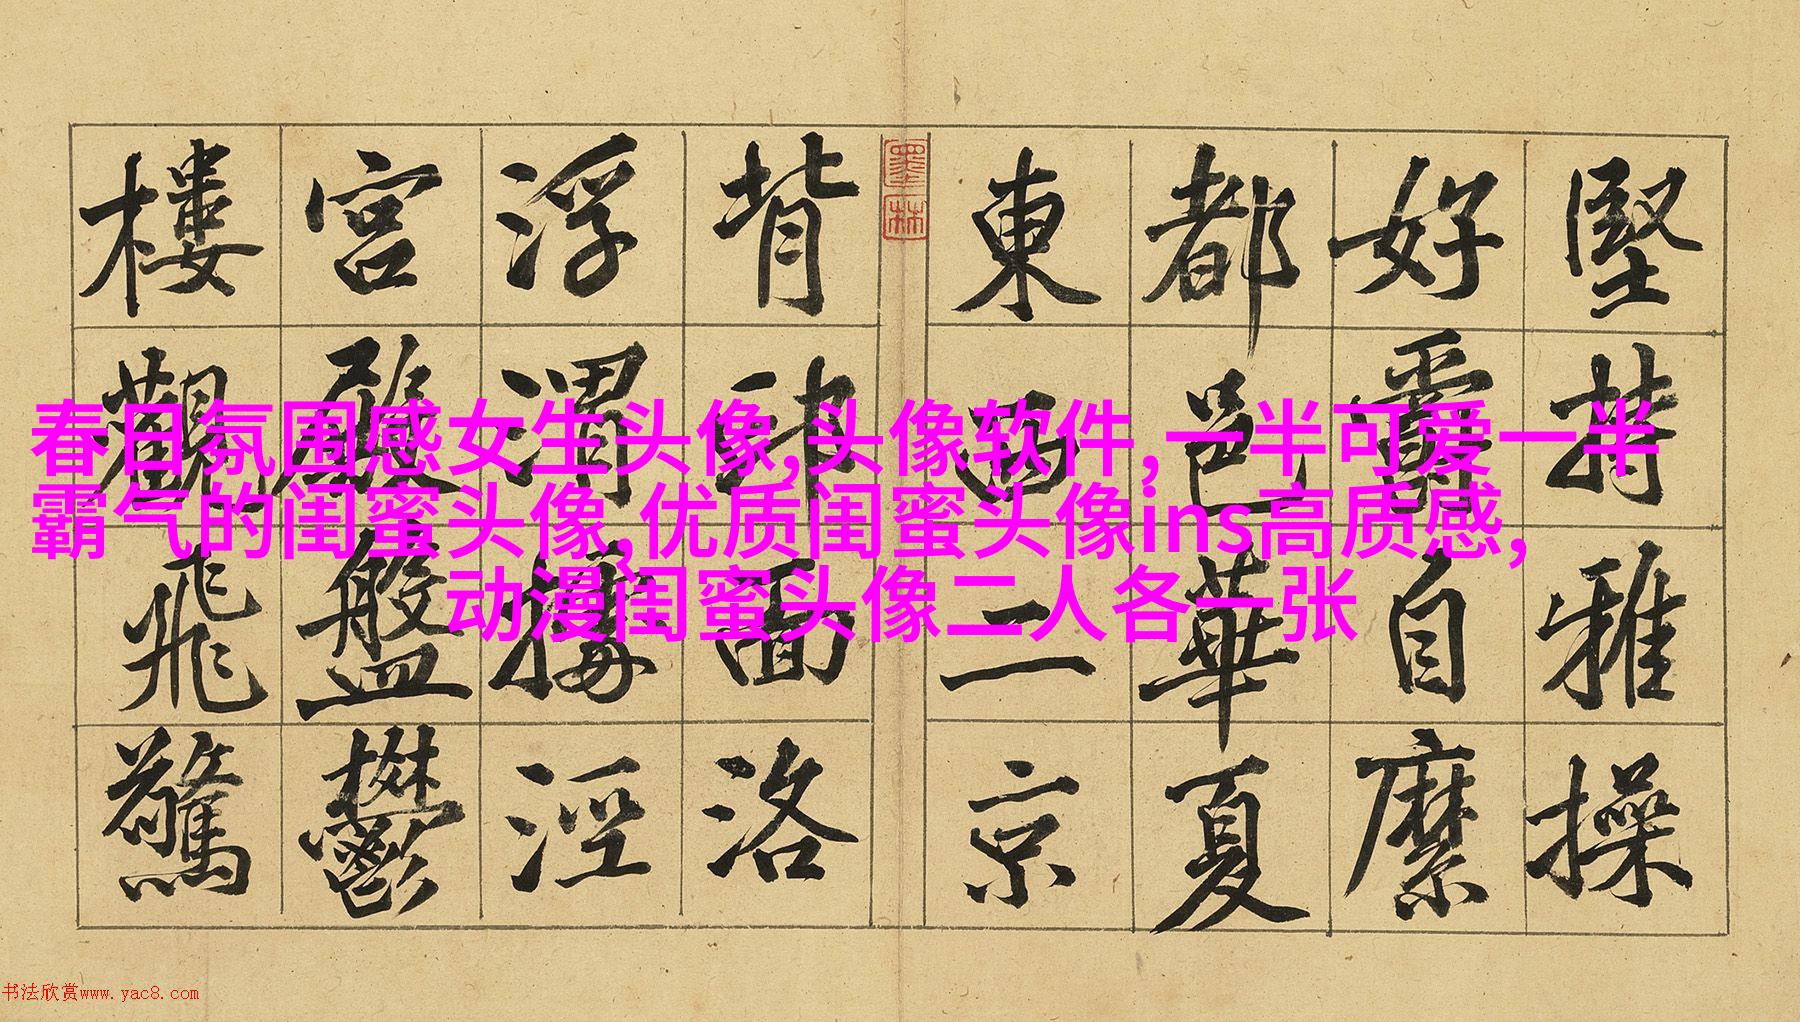 堅持雅操
好爵自縻
都邑華夏
東西二京
墨林
背邙面洛
浮渭據涇
宮殿盤鬱
樓觀飛驚
春日氛围感女生头像,头像软件,一半可爱一半
霸气的闺蜜头像,优质闺蜜头像ins高质感,
动漫闺蜜头像二人各一张
书法欣赏www.yac8.com